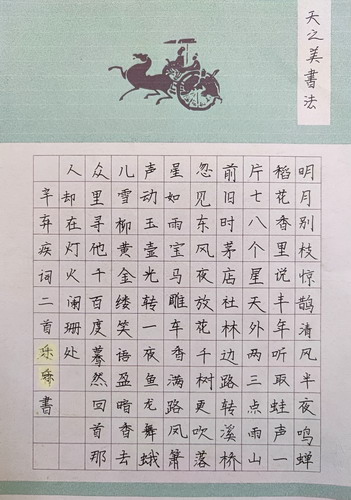 天之美書法
明月别枝惊鹊清风半夜鸣蝉
稻花香里说丰年听取蛙声一
片七八个星天外两三点雨山
前旧时茅店社林边路转溪桥
忽见东风夜放花千树更吹落
星如雨宝马雕车香满路凤箫
声动玉壶光转一夜鱼龙舞蛾
儿雪柳黄金缕笑语盈暗香去
众里寻他千百度蓦然回首那
人却在灯火阑珊处
辛弃疾词二首乐書